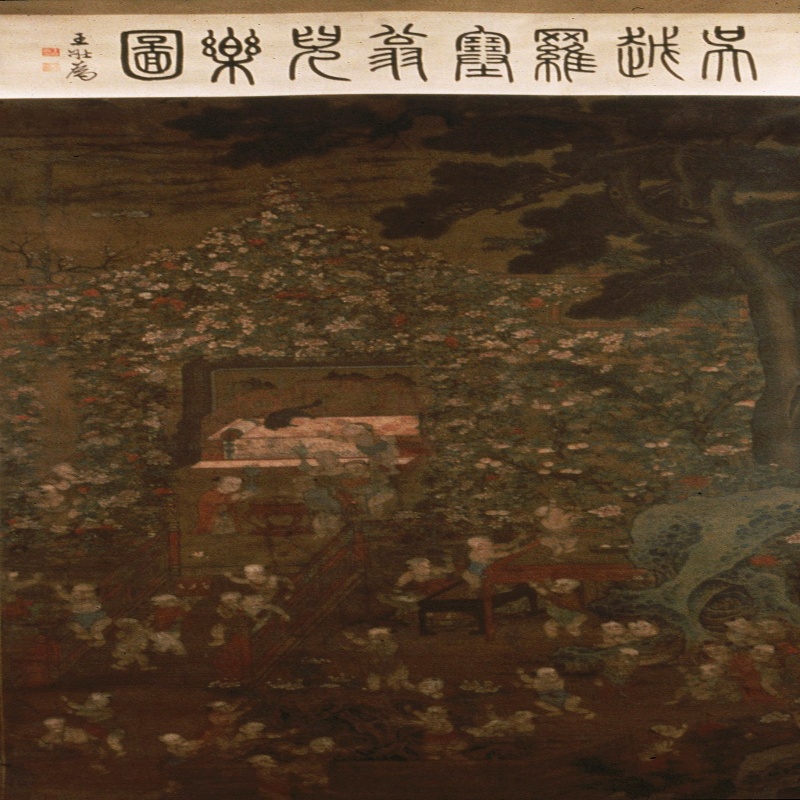 吳越羅塞翁兒樂圖
王壯為